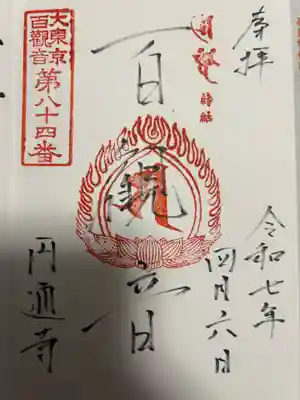 奉拝
令和七年
四月六日
百観音
円通寺
大東京
百観音
第八十四番